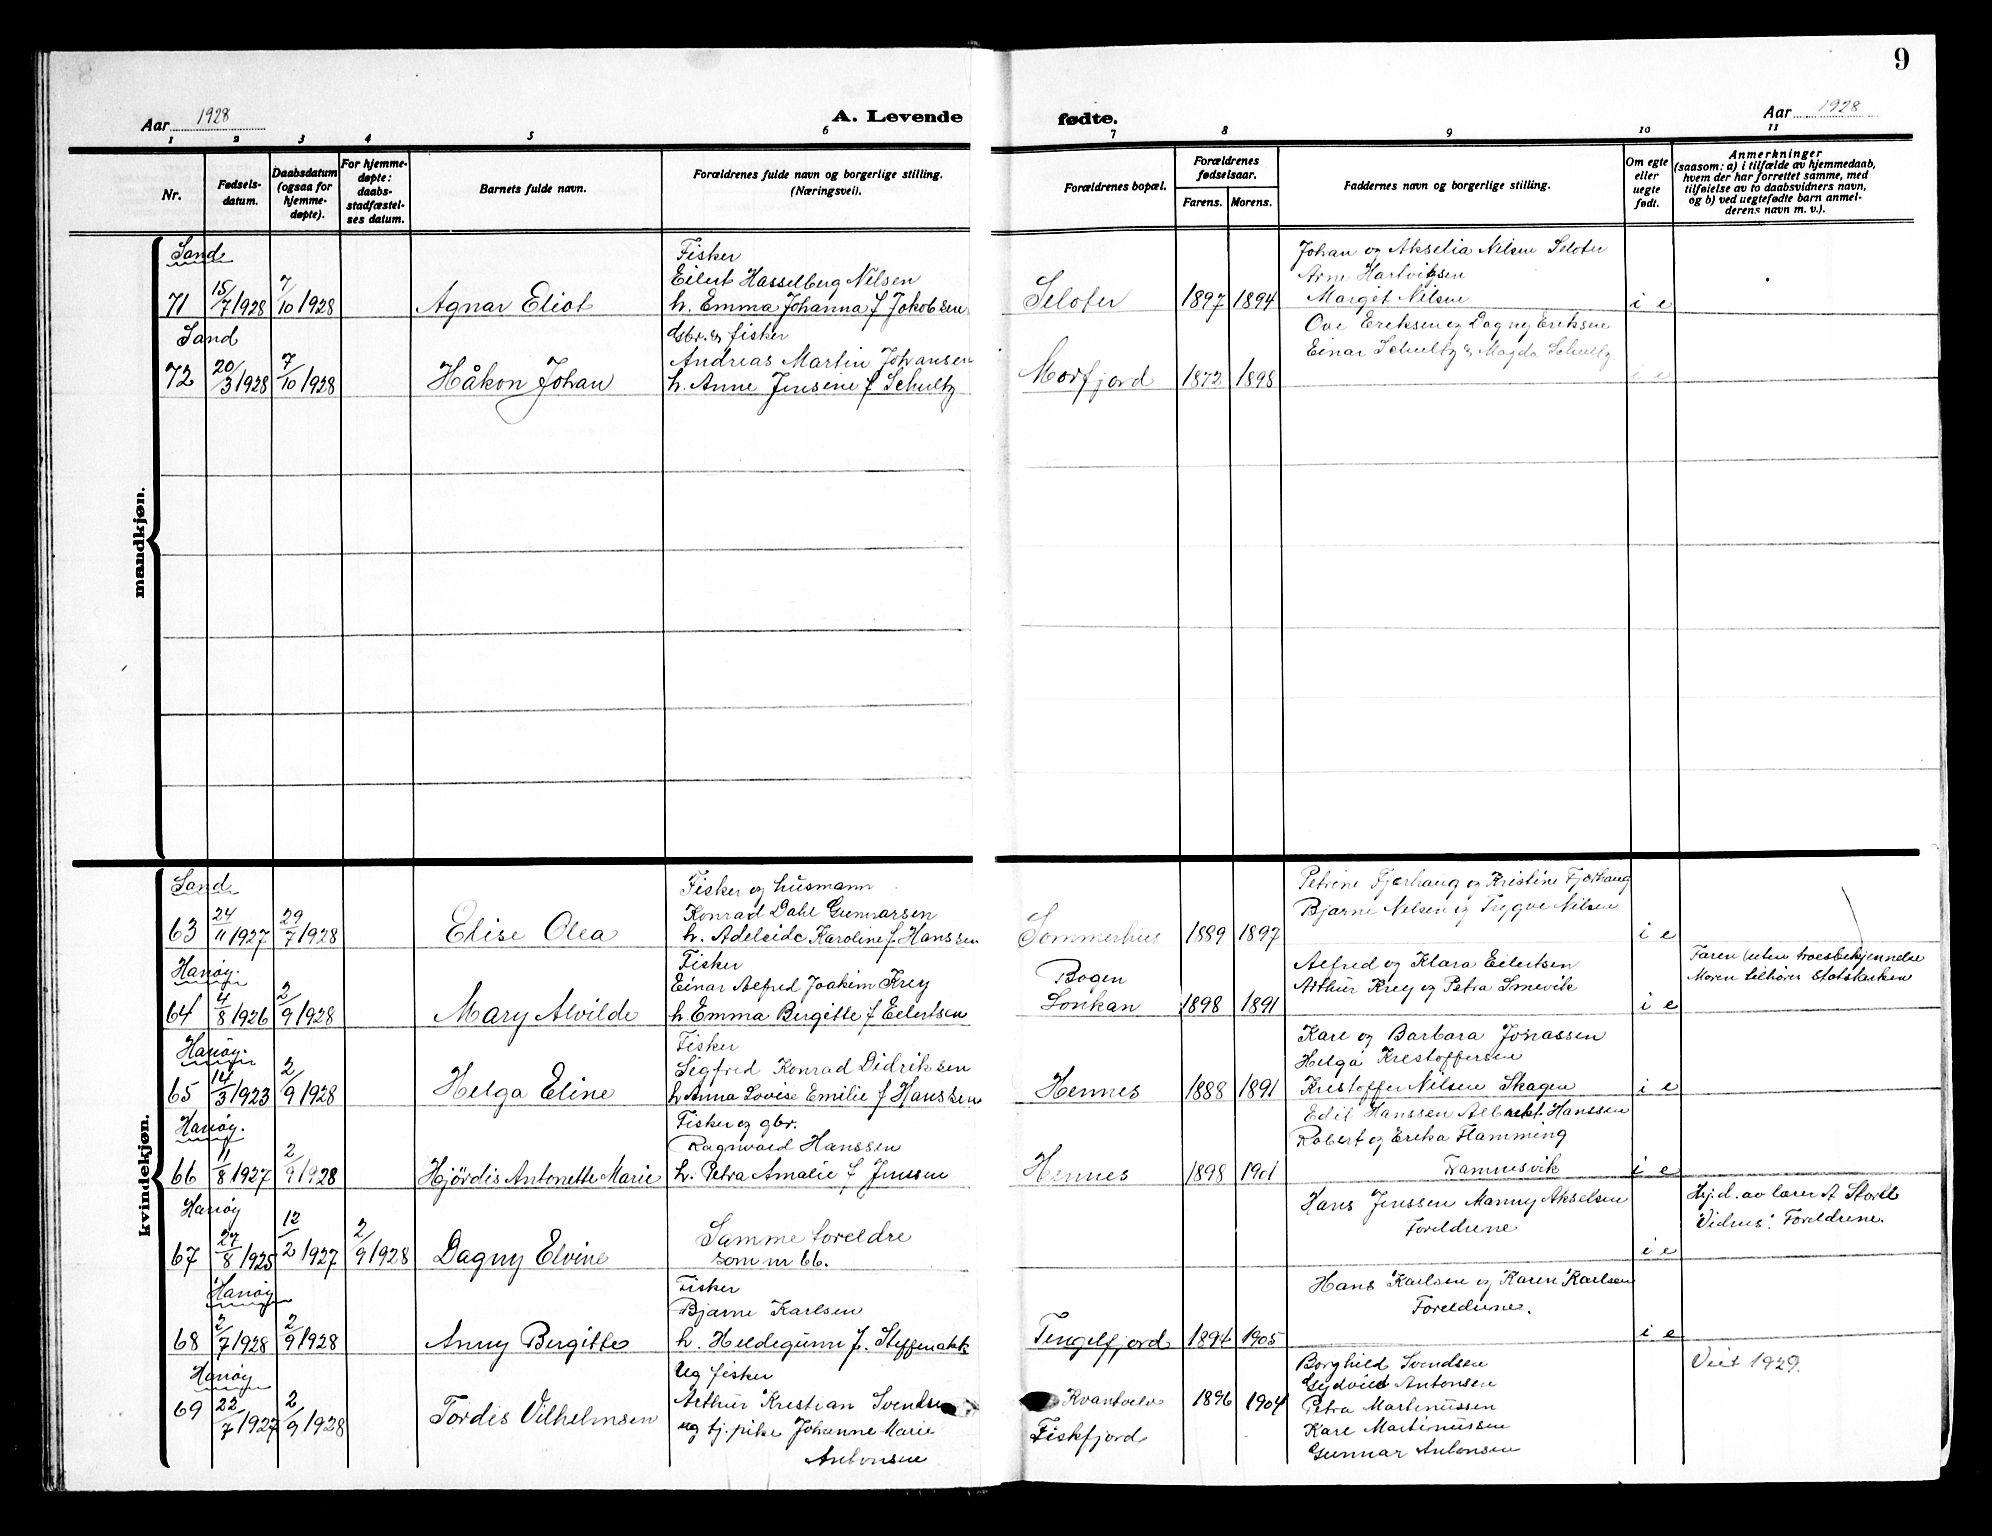 9
Aar 1928
A. Levende
fødte.
Aar 1928
1 2 3 4 5 6 7 8 9 10 11
Nr.
Fødsels-
datum.
Daabsdatum
(ogsaa for
hjemme-
døpte).
For hjemme-
døpte:
daabs-
stadfæstel-
ses datum.
Barnets fulde navn.
Forældrenes fulde navn og borgerlige stilling.
(Næringsvei).
Forældrenes bopæl.
Forældrenes
fødselsaar.
Farens. Morens.
Faddernes navn og borgerlige stilling.
Om egte
eller
uegte
født.
Anmerkninger
(saasom: a) i tilfælde av hjemmedaab,
hvem der har forrettet samme, med
tilføielse av to daabsvidners navn,
og b) ved uegtefødte barn anmel-
derens navn m. v.).
mandkjøn.
Sand
71 15/7 1928 7/10 1928 Agnar Eliot
Fisker
Eilert Hasselberg Nilsen
h. Emma Johanna f Jakobsen
Selofer 1897 1894
Johan og Akselia Nilsen Selofer
Arne Hartviksen
Margit Nilsen
i e
Sand
72 20/3 1928 7/10 1928 Håkon Johan
Gbr. og fisker
Andreas Martin Johansen
h. Anne Jensine f Schultz
Morfjord 1872 1898
Ove Eriksen og Dagny Eriksen
Einar Schultz og Magda Schultz
i e
kvindekjøn.
Sand
63 24/11 1927 29/7 1928 Elise Olea
Fisker og husmann
Konrad Dahl Gunnarsen
h. Adeleide Karoline f. Hanssen
Sommerhus 1889 1897
Petrine Fjærhaug og Kristine Fjærhaug
Bjarne Nilsen og Trygve Nilsen
i e
Hanøy.
64 4/8 1926 2/9 1928 Mary Alvilde
Fisker
Einar Alfred Joakim Krey
h. Emma Birgitte f Eilertsen
Bogen
Lonkan 1898 1891
Alfred og Klara Eilertsen
Arthur Krey og Petra Smevik
i e
Faren uten troesbekjennelse
Moren tilhører Statskirken
Hanøy.
65 14/3 1923 2/9 1928 Helga Eline
Fisker
Sigfred Konrad Didriksen
h. Anna Lovise Emilie f Hanssen
Hennes 1888 1891
Kare og Barbara Jonassen
Helga Kristoffersen
Kristoffer Nilsen Skagen
i e
Hanøy.
66 11/8 1927 2/9 1928 Hjördis Antonette Marie
Fisker og gbr.
Ragnvald Hanssen
h. Petra Amalie f Jenssen
Hennes 1898 1901
Edit Hanssen Albrekt. Hanssen
Robert og Erika Flamming
Framnesvik
i e
Hanøy
67 27/8 1925 12/2 1927 2/9 1928 Dagny Elvine
Samme foreldre
som nr 66.
Hans Jenssen Manny Akselsen
Foreldrene
i e
Hj.d. av lærer A Stoltl
Vidnes: Foreldrene.
Hanøy
68 2/7 1928 2/9 1928 Anny Birgitte
Fisker
Bjarne Karlsen
h. Hildegunn f. Steffenakk
Tengelfjord 1894 1905
Hans Karlsen og Karen Karlsen
Foreldrene.
i e
Hanøy
69 22/7 1927 2/9 1928 Tordis Vilhelmsen
Ug fisker
Arthur Kristian Svendsen
ug tj. pike Johanne Marie
Antonsen
Kvantoelv
Fiskfjord
1896 1904
Borghild Svendsen
Gudvied Antonsen
Petra Martinussen
Kare Martinussen
Gunnar Antonsen
Viet 1929.